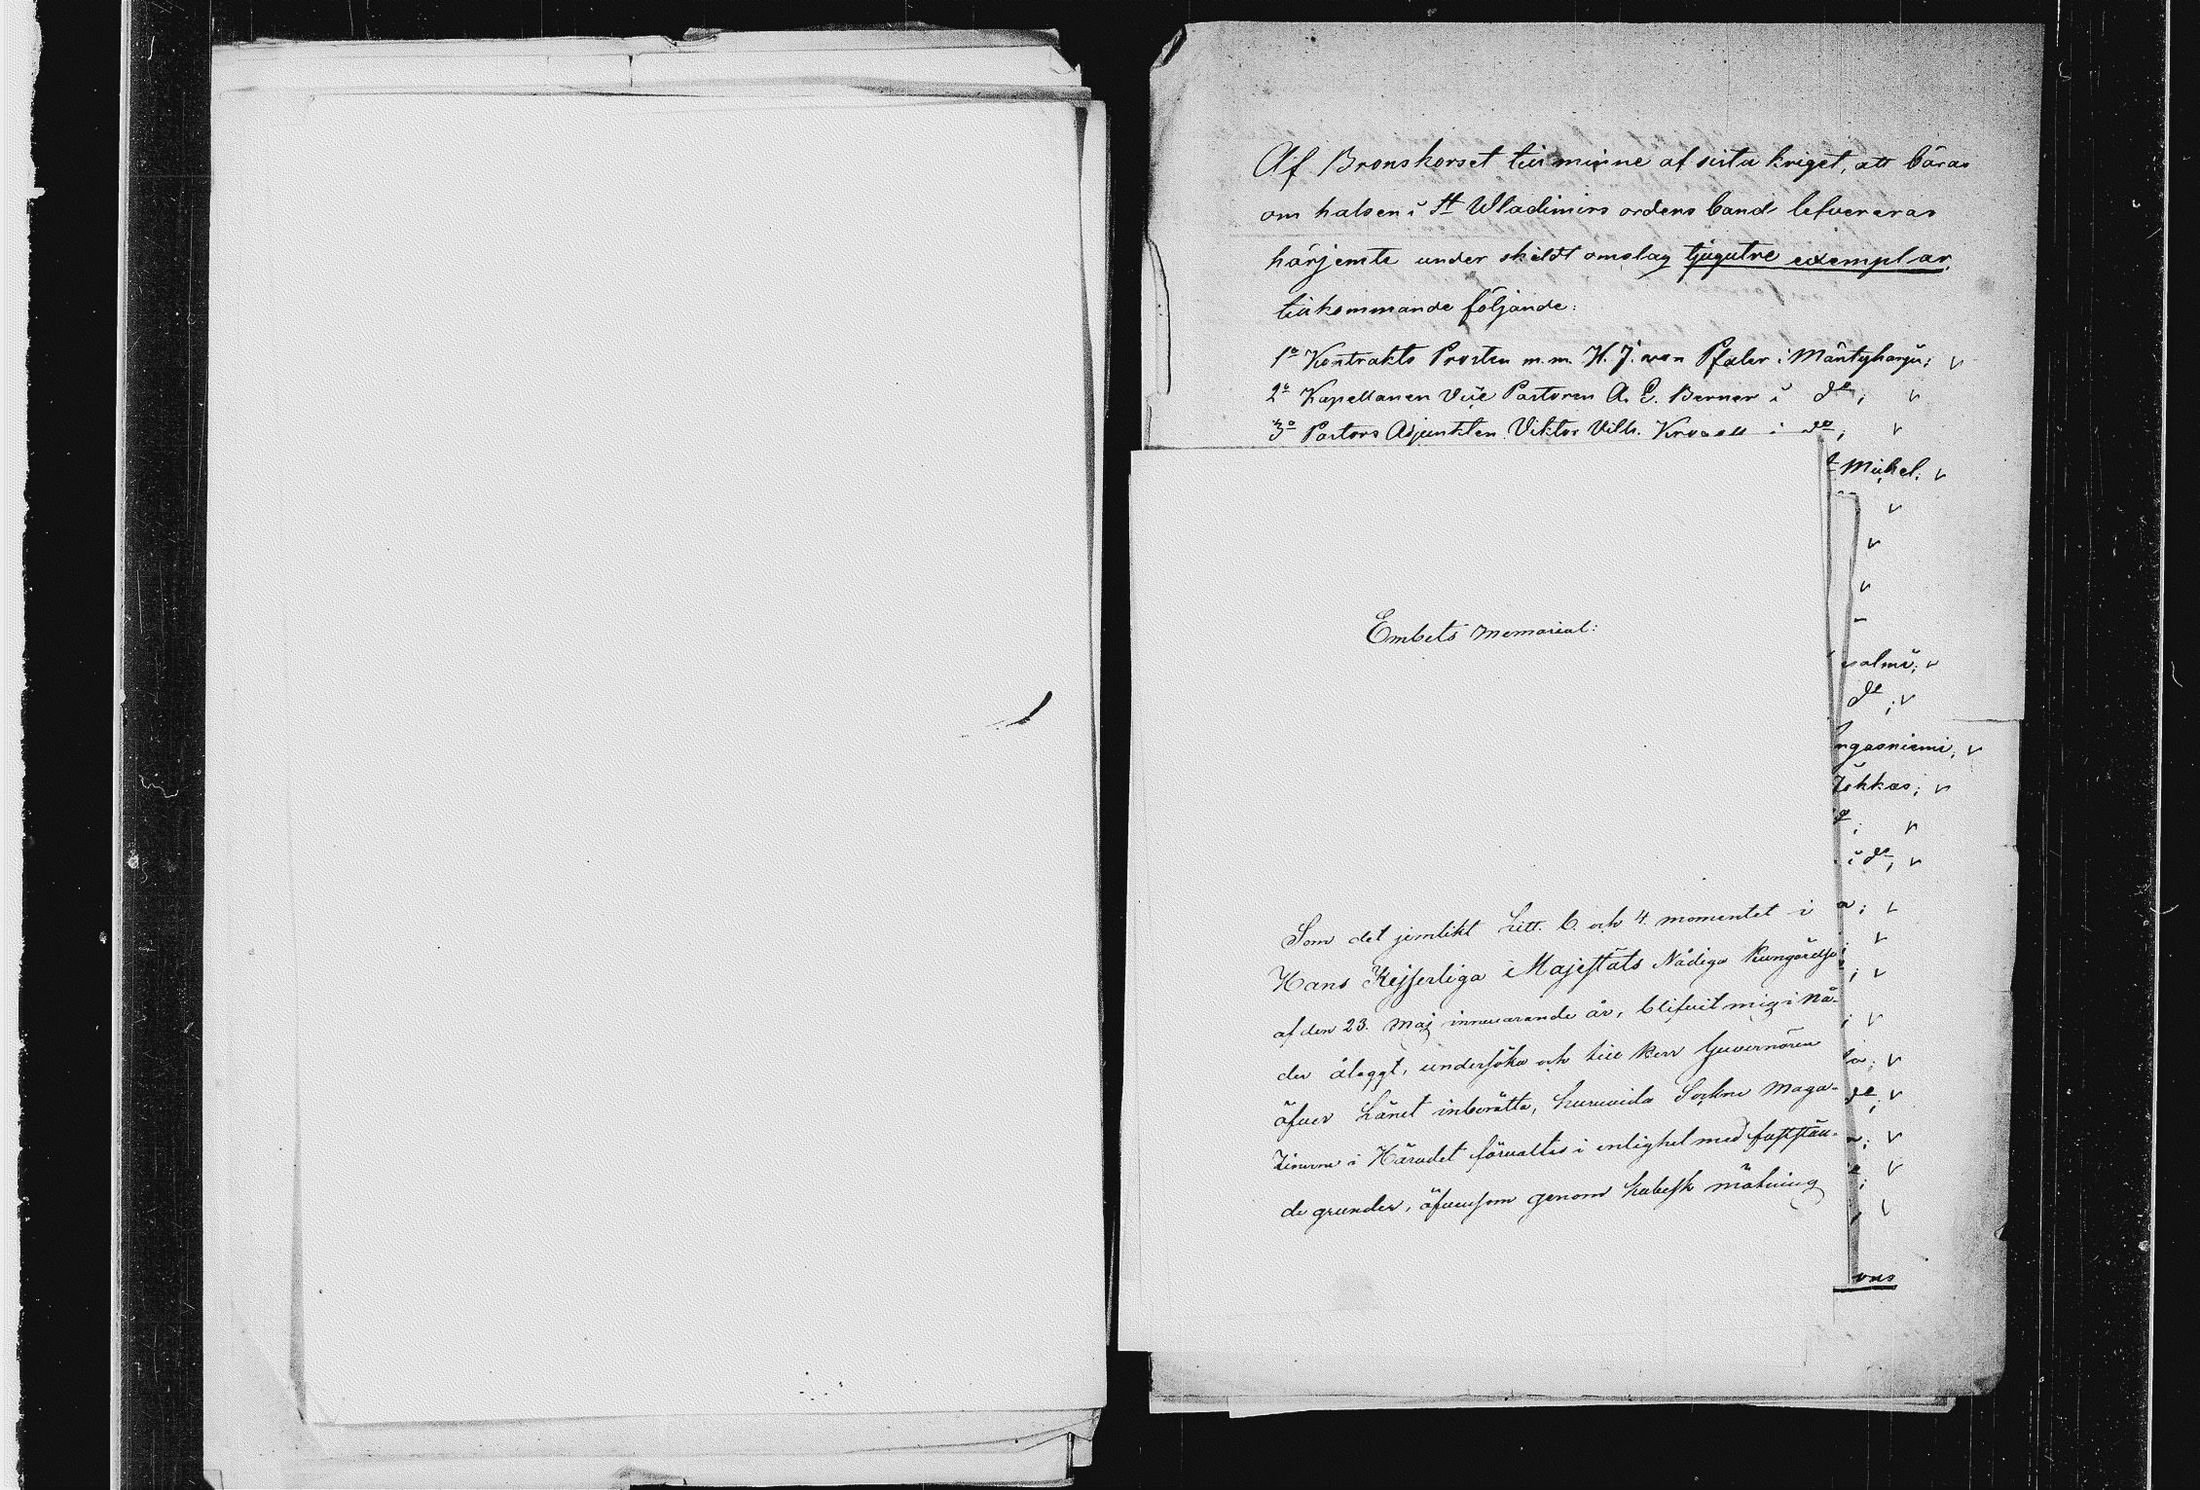 Af Bronskorset till minne af sista kriget, att bäras
om halsen i St Wladimirs ordens band lefvereras
härjemte under skildt omslag tjugutre exemplar,
tillkommande följande:
1o Kontrakts Prosten m.m. H. J. von Pfaler i Mäntyharju; v
2o Kapellanen Vice Pastoren A. E. Berner i do; v
3o Pastors Adjunkten Viktor Vilh. i do; v
t Michel; v
v
v
v
salmi; v
do; v
ngasniemi; v
i do; v
a; v
v
; v
; v
la; v
do; v
a; v
; v
; v
Embets Memorial:
Som det jemlikt Litt. b. och 4. momentet i
Hans Kejserliga Majestäts Nådiga Kungörelse
af den 23. Maj innevarande år, blifvit mig i nå-
der ålaggt, undersöka och till Herr Guvernören
öfver Länet inberätta, huruvida Sockne Maga-
zinerne i Häradet förvaltas i enlighet med faststäl-
de grunder, äfvensom genom kubisk mätning